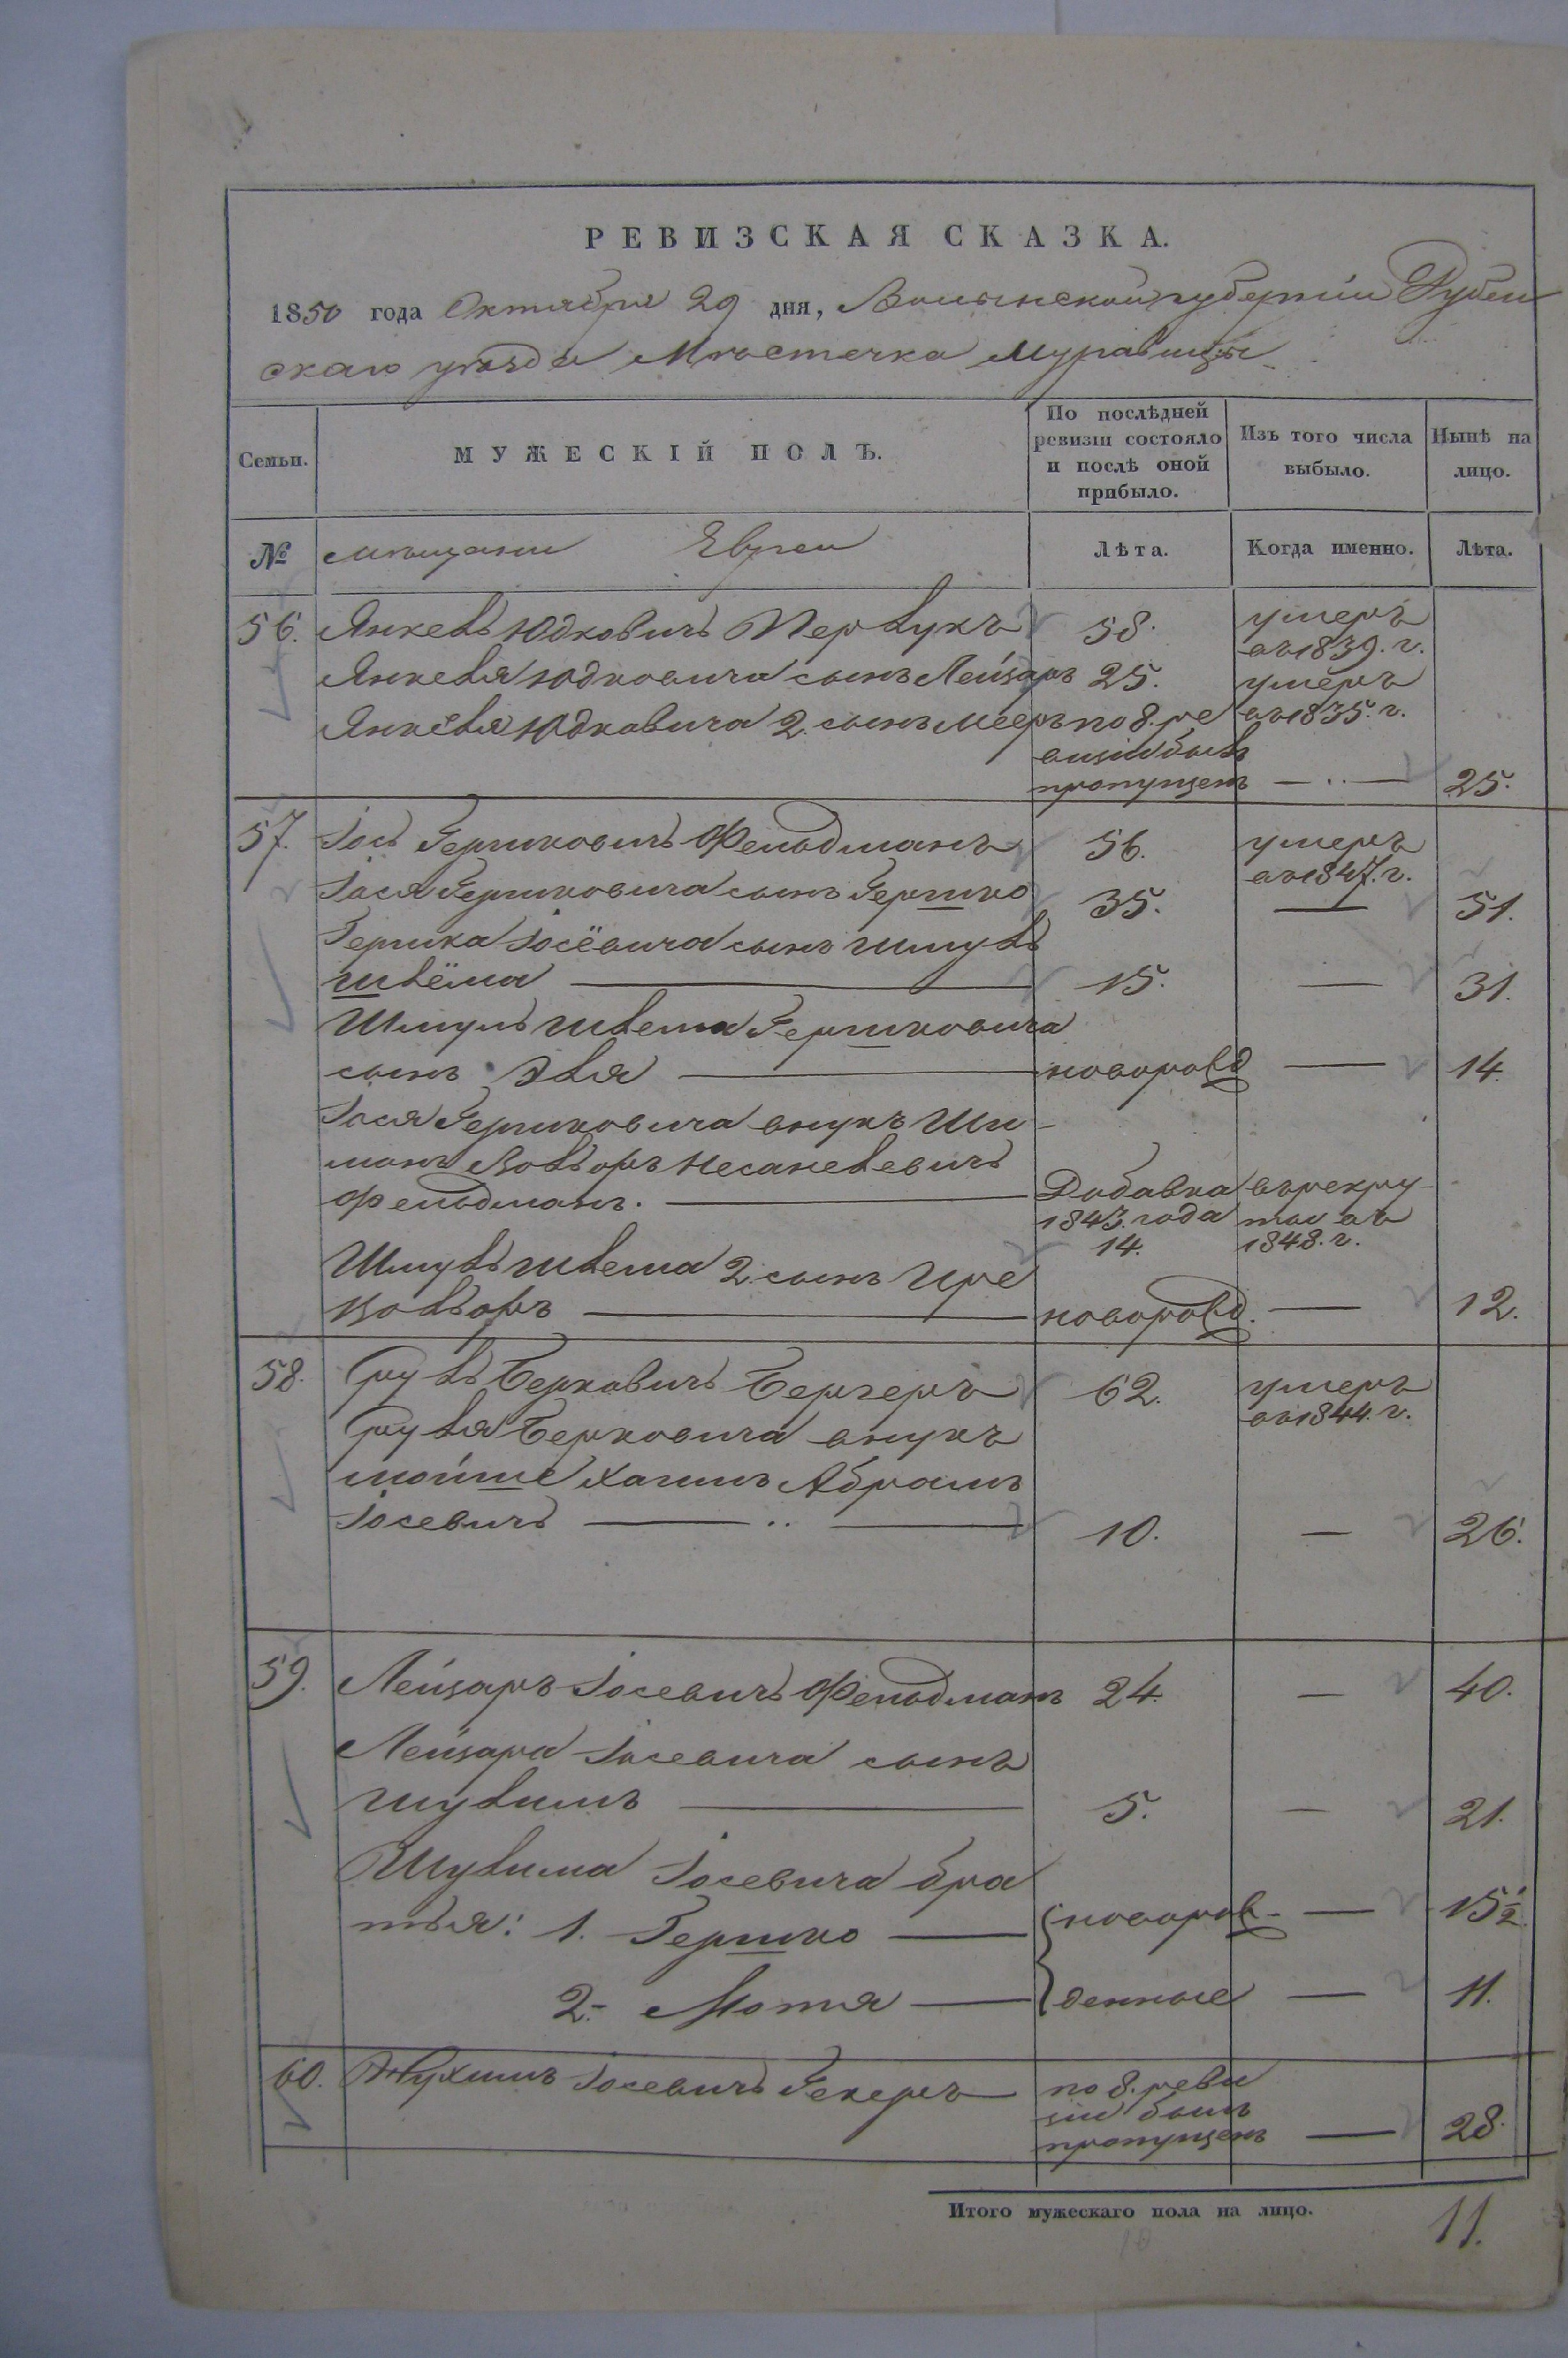 РЕВИЗСКАЯ СКАЗКА.
1850 года Октября 29 дня, Волынской губерніи Дубен
скаго уѣзда Мѣстечка Муравицы
Семьи.
МУЖЕСКІЙ ПОЛЪ.
По послѣдней
ревизіи состояло
и послѣ оной
прибыло.
Изъ того числа
выбыло.
Нынѣ на
лицо.
№ мѣщани Евреи Лѣта. Когда именно. Лѣта.
56. Янкель Юдковичъ 58. умеръ
въ 1839. г.
Янкеля Юдковича сынъ Лейзаръ 25. умеръ
въ 1835. г.
Янкеля Юдковича 2. сынъ Мееръ по 8. ре
визіи былъ
пропущенъ — 25.
57. Іось Гершковичъ Фельдманъ 56. умеръ
въ 1847. г.
Іося Гершковича сынъ Гершко 35. — 51.
Гершка Іосёвича сынъ Шмуль
шлёма — 15. — 31.
Шмуль шлема Гершковича
сынъ Эля — новорожд — 14.
Іося Гершковича внукъ Ши-
манъ Вольфъ
Фельдманъ. — Добавка
1843. года
14.
въ рекру
ты въ
1848. г.
Шмуль шлема 2. сынъ
Вольфъ — новорожд. — 12.
58. Сруль Берковичъ Бергеръ 62. умеръ
въ 1844. г.
Сруля Берковича внукъ
мойше Хаимъ Абрамъ
Іосевичъ — 10. — 26.
59. Лейзаръ Іосевичъ Фельдманъ 24. — 40.
Лейзара Іосевича сынъ
Шулимъ — 5. — 21.
Шулима Іосевича бра
тья: 1. Гершко — новорож- — 15½.
2.- Мотя — денные — 11.
60. Нухимъ Іосевичъ по 8. реви
зіи былъ
пропущенъ — 28.
Итого мужескаго пола на лицо. 11.